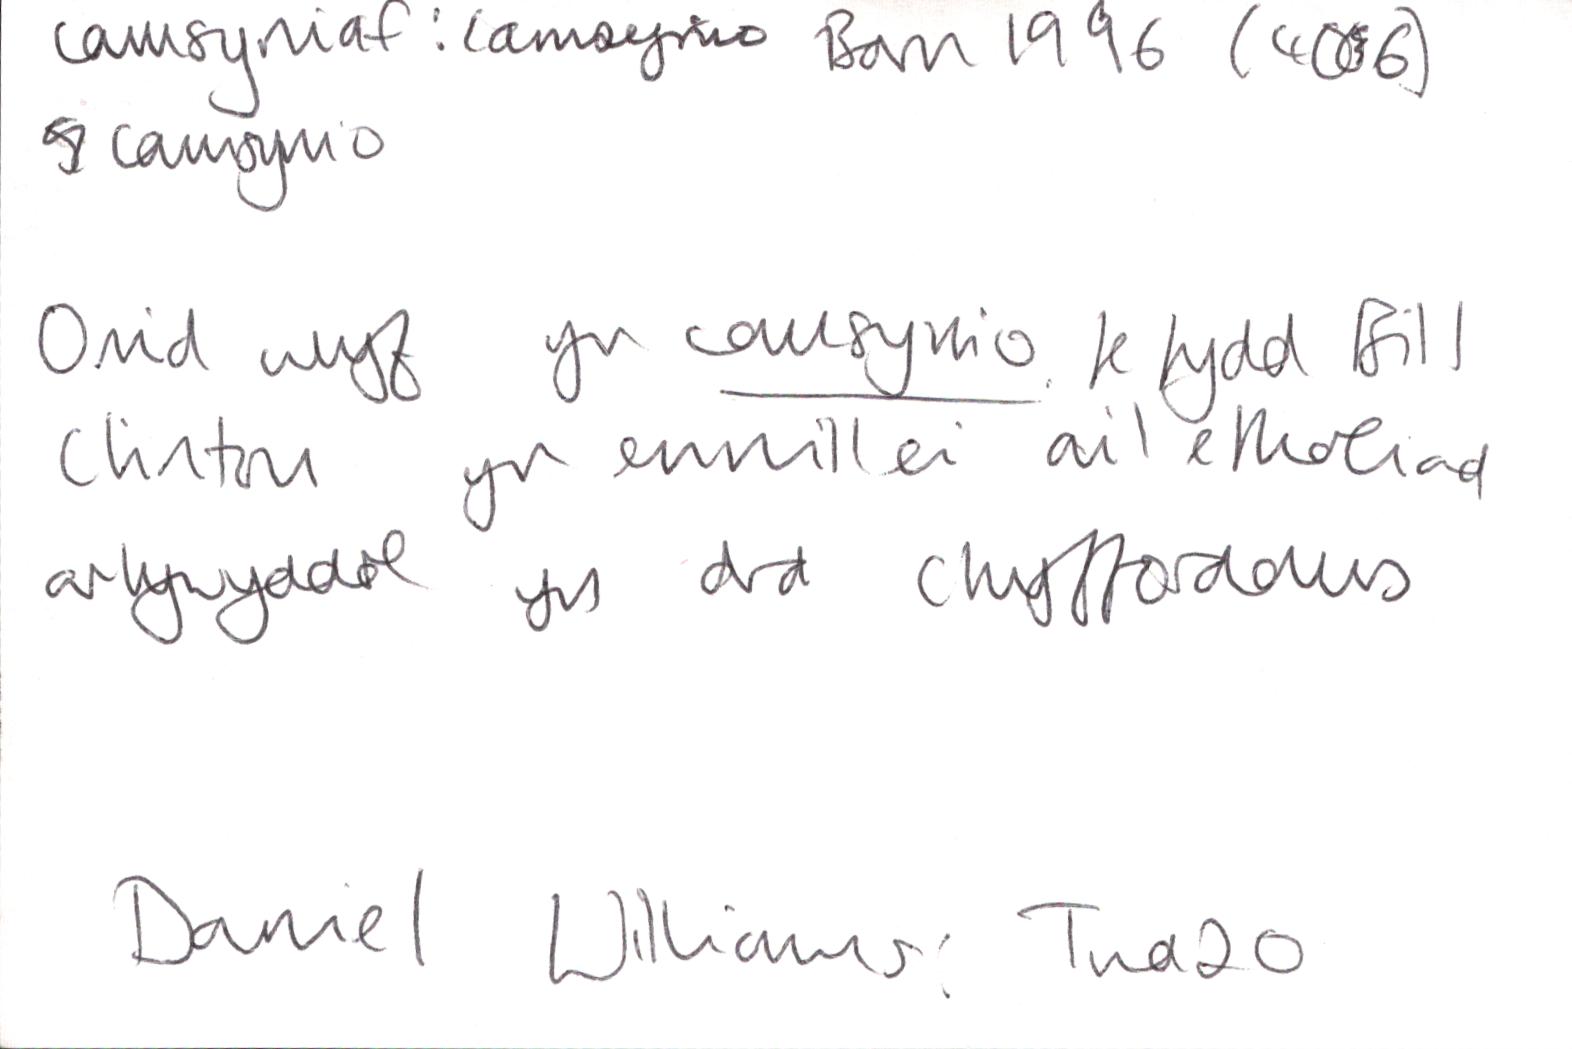 camsyniaf: camsynio Barn 1996 (406)
camsynio
Onid wyf yn camsynio, fe fydd Bill
Clinton yn ennill ei ail etholiad
arlywyddol yn dra chyfforddus
Daniel Williams: Tud 20